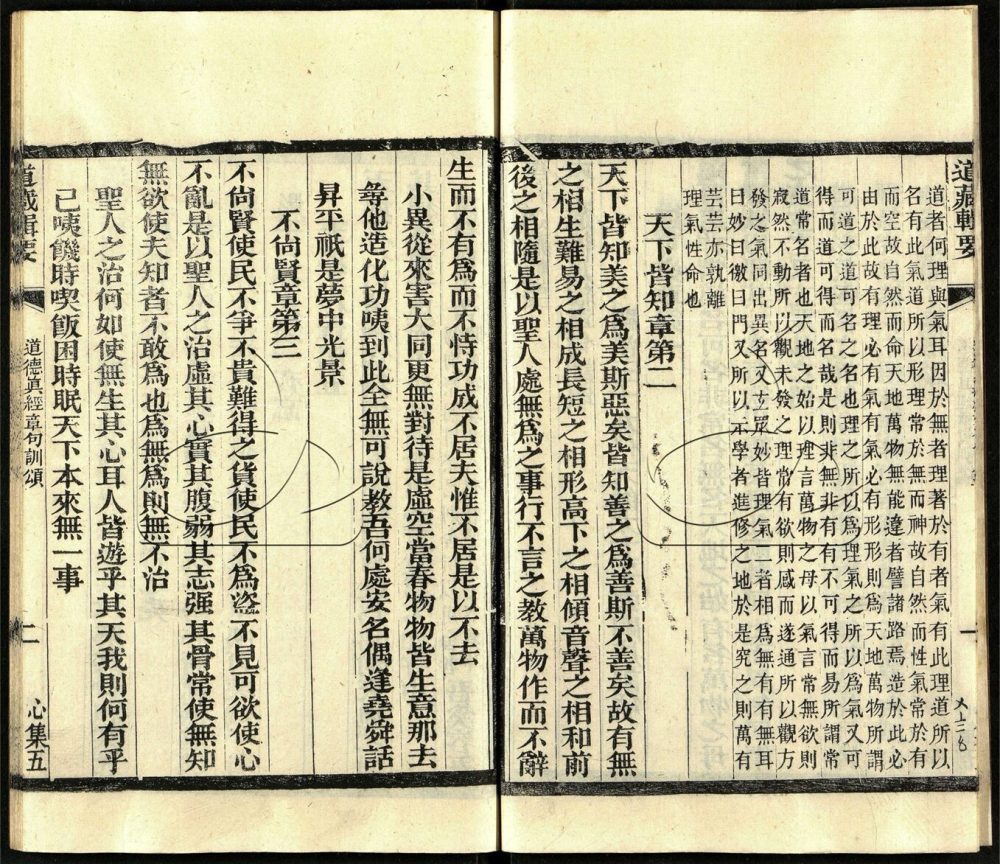 道藏輯要
道者何理與氣耳因於無者理著於有者氣有此理道所以
名有此氣道所以形理常於無而神故自然而性氣常於有
而空故自然而命天地萬物無能違者譬諸路焉造於此必
由於此故有理必有氣有氣必有形形則爲天地萬物所謂
可道之道可名之名也理之所以爲理氣之所以爲氣又可
得而道可得而名哉是則非無非有有不可得而易所謂常
道常名者也天地之始以理言萬物之母以氣言常無欲則
寂然不動所以觀未發之理常有欲則感而遂通所以觀方
發之氣同出異名又玄眾妙皆理氣二者相爲無有有無耳
曰妙曰徼曰門又所以示學者進修之地於是究之則萬有
芸芸亦孰離
理氣性命也
天下皆知章第二
天下皆知美之爲美斯惡矣皆知善之爲善斯不善矣故有無
之相生難易之相成長短之相形高下之相傾音聲之相和前
後之相隨是以聖人處無爲之事行不言之教萬物作而不辭
一
生而不有爲而不恃功成不居夫惟不居是以不去
小異從來害大同更無對待是虛空當春物物皆生意那去
尋他造化功咦到此全無可說教吾何處安名偶逢堯舜話
昇平祇是夢中光景
不尚賢章第三
不尚賢使民不爭不貴難得之貨使民不爲盜不見可欲使心
不亂是以聖人之治虛其心實其腹弱其志强其骨常使無知
無欲使夫知者不敢爲也爲無爲則無不治
聖人之治何如使無生其心耳人皆遊乎其天我則何有乎
己咦饑時喫飯困時眠天下本來無一事
道藏輯要
道德真經章句訓頌
二
心集五